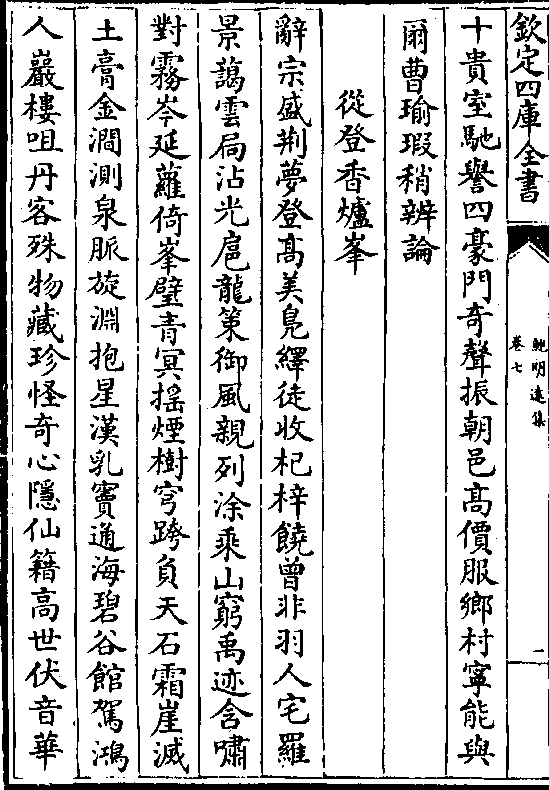 欽定四庫全書
鮑明遠集
卷七
二
十貴室馳譽四豪門奇聲振朝邑髙價服鄉村寧能與
爾曹瑜瑕稍辨論
從登香爐峯
辭宗盛荆夢登髙美鳬繹徒收杞梓饒曾非羽人宅羅
景藹雲扃沾光扈龍策御風親列涂乘山窮禹迹含嘯
對霧岑延蘿倚峯壁青冥揺煙樹穹跨負天石霜崖滅
土膏金澗測泉脈旋淵抱星漢乳竇通海碧谷館駕鴻
人巖樓咀丹客殊物藏珍怪奇心隱仙籍高世伏音華